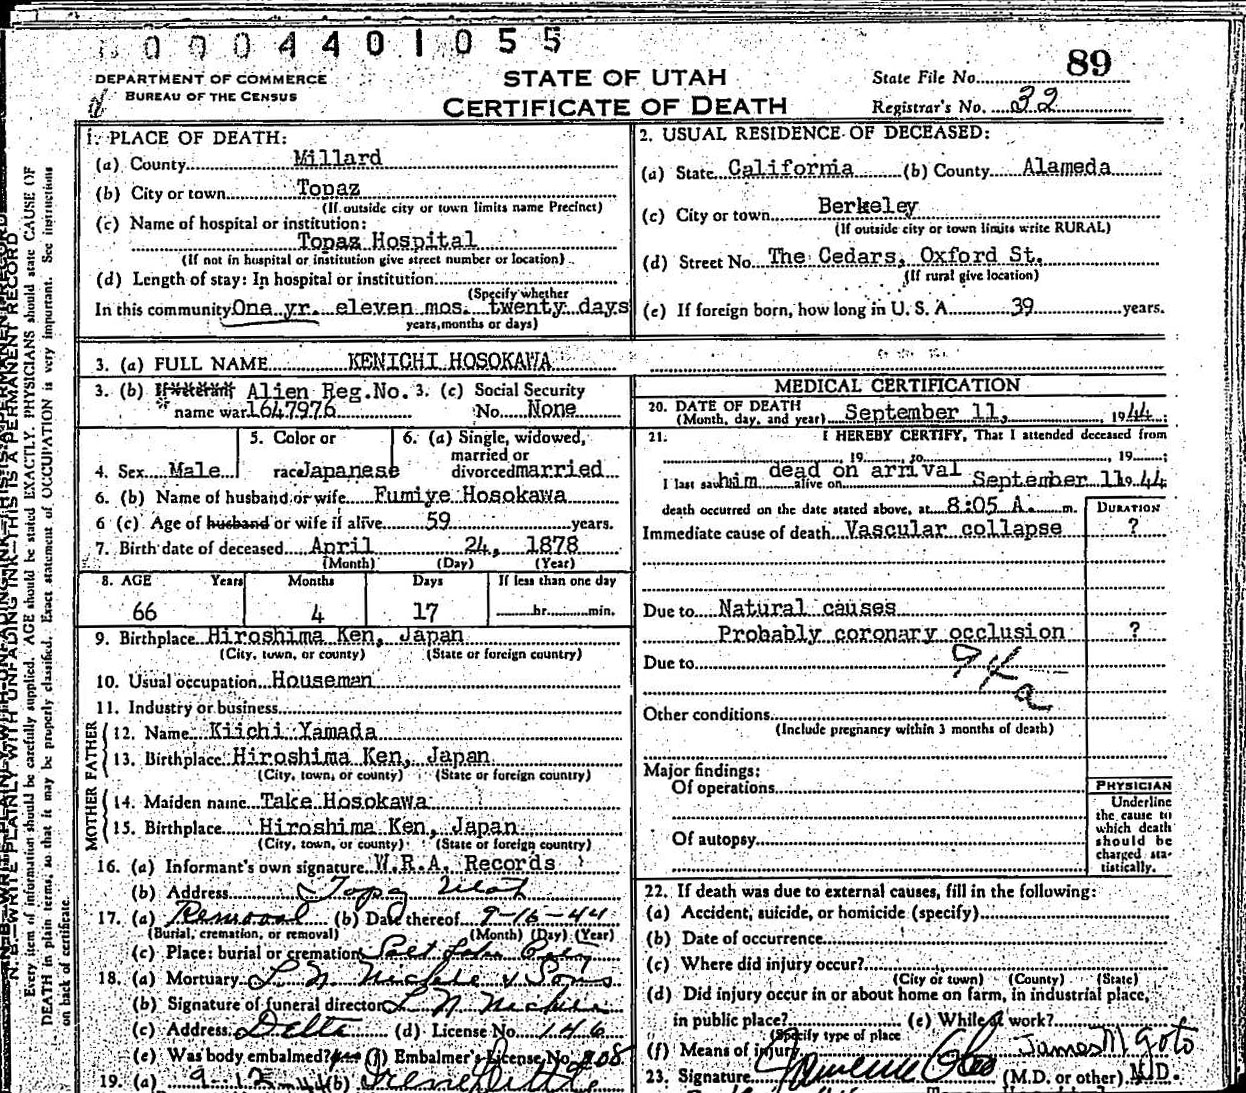 0004401055
DEPARTMENT OF COMMERCE
BUREAU OF THE CENSUS
STATE OF UTAH
CERTIFICATE OF DEATH
State File No. 89
Registrar's No. 32
1. PLACE OF DEATH:
(a) County Millard
(b) City or town Topaz
(If outside city or town limits name Precinct)
(c) Name of hospital or institution:
Topaz Hospital
(If not in hospital or institution give street number or location)
(d) Length of stay: In hospital or institution
(Specify whether
In this community One yr. eleven mos. twenty days
years, months or days)
2. USUAL RESIDENCE OF DECEASED:
(a) State California (b) County Alameda
(c) City or town Berkeley
(If outside city or town limits write RURAL)
(d) Street No. The Cedars, Oxford St.
(If rural give location)
(e) If foreign born, how long in U. S. A. 39 years.
3. (a) FULL NAME KENICHI HOSOKAWA
3. (b) If veteran Alien Reg.No. 3. (c) Social Security
name war 1647976 No. None
5. Color or 6. (a) Single, widowed,
married or
4. Sex Male race Japanese divorced married
6. (b) Name of husband or wife Fumiye Hosokawa
6 (c) Age of husband or wife if alive 59 years.
7. Birth date of deceased April 24, 1878
(Month) (Day) (Year)
8. AGE Years Months Days If less than one day
66 4 17 hr. min.
9. Birthplace Hiroshima Ken, Japan
(City, town, or county) (State or foreign country)
10. Usual occupation Houseman
11. Industry or business
FATHER
12. Name Kiichi Yamada
13. Birthplace Hiroshima Ken, Japan
(City, town, or county) (State or foreign country)
MOTHER
14. Maiden name Take Hosokawa
15. Birthplace Hiroshima Ken, Japan
(City, town, or county) (State or foreign country)
16. (a) Informant's own signature W.R.A. Records
(b) Address Topaz Utah
17. (a) Removal (b) Date thereof 9-16-44
(Burial, cremation, or removal) (Month) (Day) (Year)
(c) Place: burial or cremation Salt Lake
18. (a) Mortuary L. N. & Sons
(b) Signature of funeral director L N
(c) Address Delta (d) License No. 146
(e) Was body embalmed? yes (f) Embalmer's License No. 208
19. (a) 9-12-44 (b) Irene
MEDICAL CERTIFICATION
20. DATE OF DEATH
(Month, day, and year) September 11, 1944
21. I HEREBY CERTIFY, That I attended deceased from
, 19 , to , 19 ;
dead on arrival
I last saw him alive on September 11 1944
death occurred on the date stated above, at 8:05 A. m.
DURATION
Immediate cause of death Vascular collapse ?
Due to Natural causes
Probably coronary occlusion ?
Due to 94a
Other conditions
(Include pregnancy within 3 months of death)
Major findings:
Of operations
Of autopsy
PHYSICIAN
Underline
the cause to
which death
should be
charged sta-
tistically.
22. If death was due to external causes, fill in the following:
(a) Accident, suicide, or homicide (specify)
(b) Date of occurrence
(c) Where did injury occur?
(City or town) (County) (State)
(d) Did injury occur in or about home on farm, in industrial place,
in public place? (e) While at work?
(Specify type of place
(f) Means of injury James M Goto
23. Signature (M.D. or other) M.D.
N. B.—WRITE PLAINLY WITH UNFADING INK—THIS IS A PERMANENT RECORD
Every item of information should be carefully supplied. AGE should be stated EXACTLY. PHYSICIANS should state CAUSE OF
DEATH in plain terms, so that it may be properly classified. Exact statement of OCCUPATION is very important. See instructions
on back of certificate.